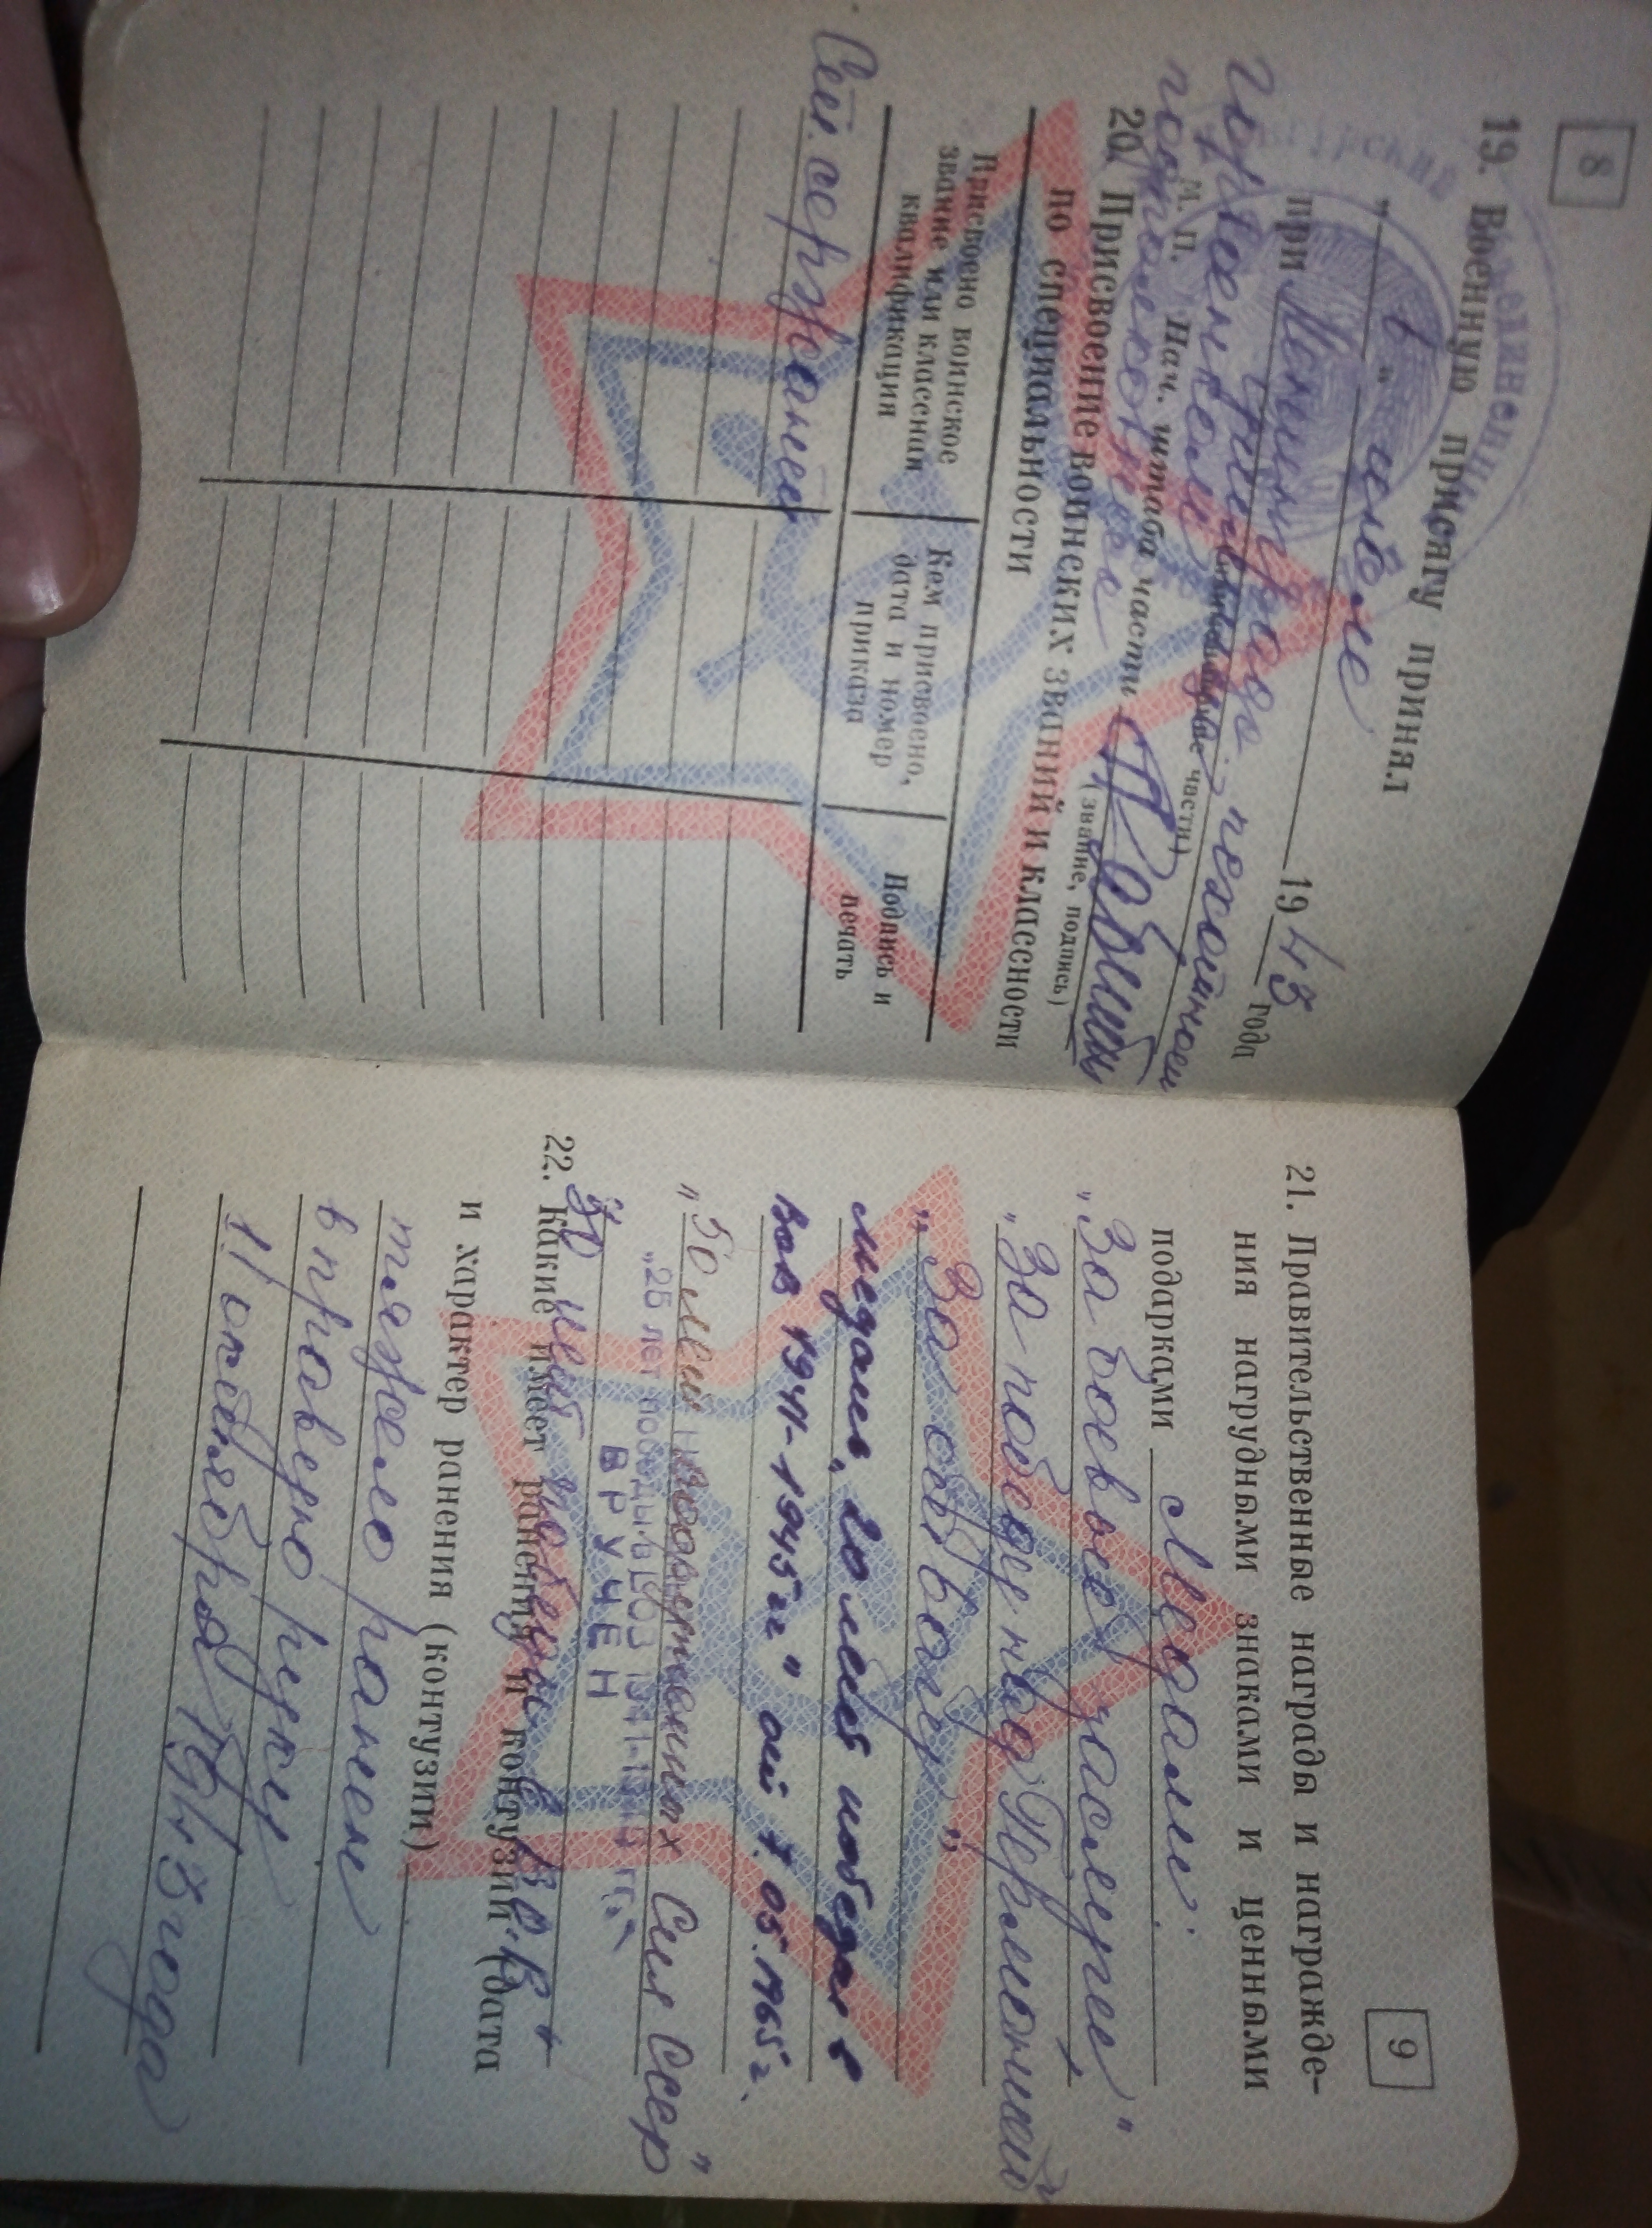 8
19. Военную присягу принял
" 1 " июне 1943 года
при Ленинградско пехотном
(наименование части)
военкоме
М. П. Нач. штаба части
(звание, подпись)
20. Присвоение воинских званий и классности
по специальности
Присвоено воинское
звание или классная
квалификация
Кем присвоено,
дата и номер
приказа
Подпись и
печать
Сет. сержант
9
21. Правительственные награды и награжде-
ния нагрудными знаками и ценными
подарками Медали:
„За боевые заслуги"
„За победу над Германией"
„За отвагу"
медаль „20 лет победы в
Вов 1941-1945гг" от 7.05.1965г.
„50 лет вооруженных Сил Ссср"
„25 лет победы в ВОЗ 1941-1945 гг."
ВРУЧЕН
30 лет победы в В.О.В.
22. Какие имеет ранения и контузии (дата
и характер ранения (контузии)
тяжело ранен
в правую руку
11 октября 1943 года